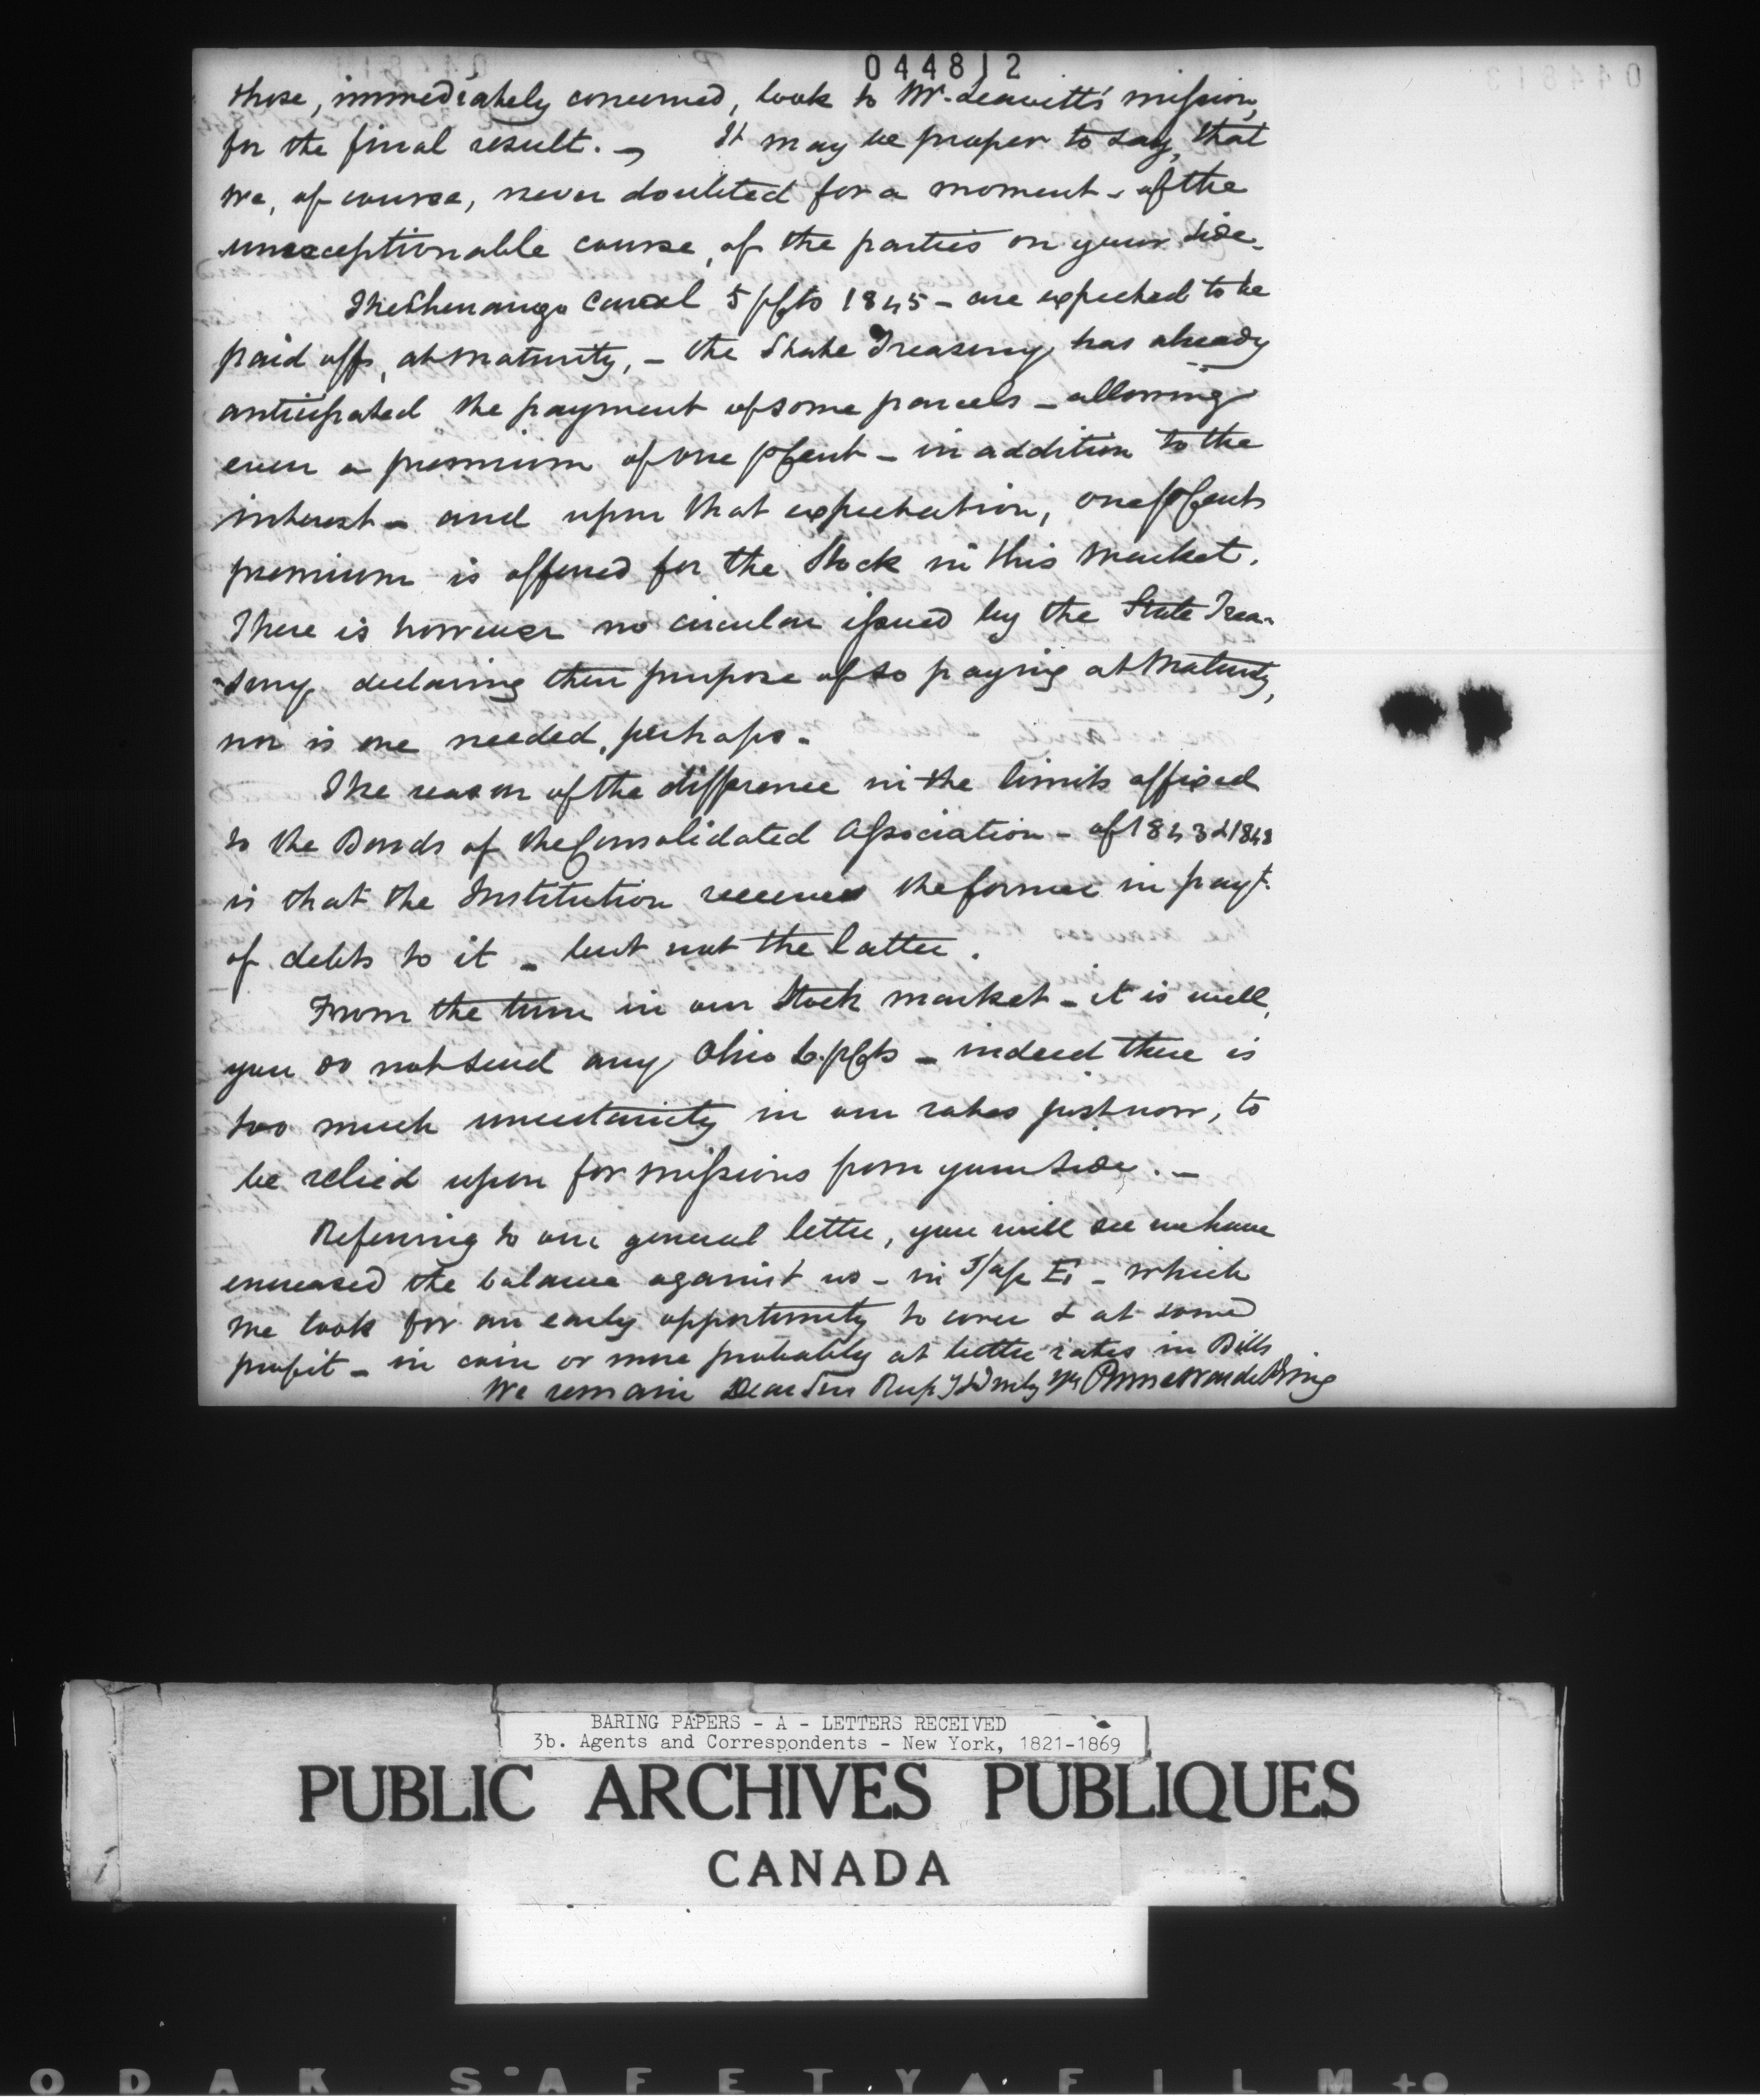 044812
those, immediately concerned, look to Mr. Leavitt's mission,
for the final result. — It may be proper to say, that
we, of course, never doubted for a moment - of the
unexceptionable course, of the parties on your side.
The Chenango Canal 5 p Cts 1845 - are expected to be
paid off, at maturity, - the State Treasury has already
anticipated the payment of some parcels - allowing
even a premium of one p Cent - in addition to the
interest - and upon that expectation, one p Cents
premium is offered for the Stock in this market.
There is however no circular issued by the State Trea-
sury declaring their purpose of so paying at maturity,
nor is one needed, perhaps.
The reason of the difference in the limits affixed
to the Bonds of the Consolidated Association - of 1843 & 1848
is that the Institution receives the former in payt.
of debts to it - but not the latter.
From the turn in our Stock market - it is well,
you do not send any Ohio 6. p Cts - indeed there is
too much uncertainty in our rates just now, to
be relied upon for missions from your side. —
Referring to our general letter, you will see we have
encreased the balance against us - in - which
we look for an early opportunity to cover & at some
profit - in coin or more probably at better rates in Bills
We remain Dear Sirs Prime Ward & King
BARING PAPERS - A - LETTERS RECEIVED
3b. Agents and Correspondents - New York, 1821-1869
PUBLIC ARCHIVES PUBLIQUES
CANADA
ODAK SAFETY FILM